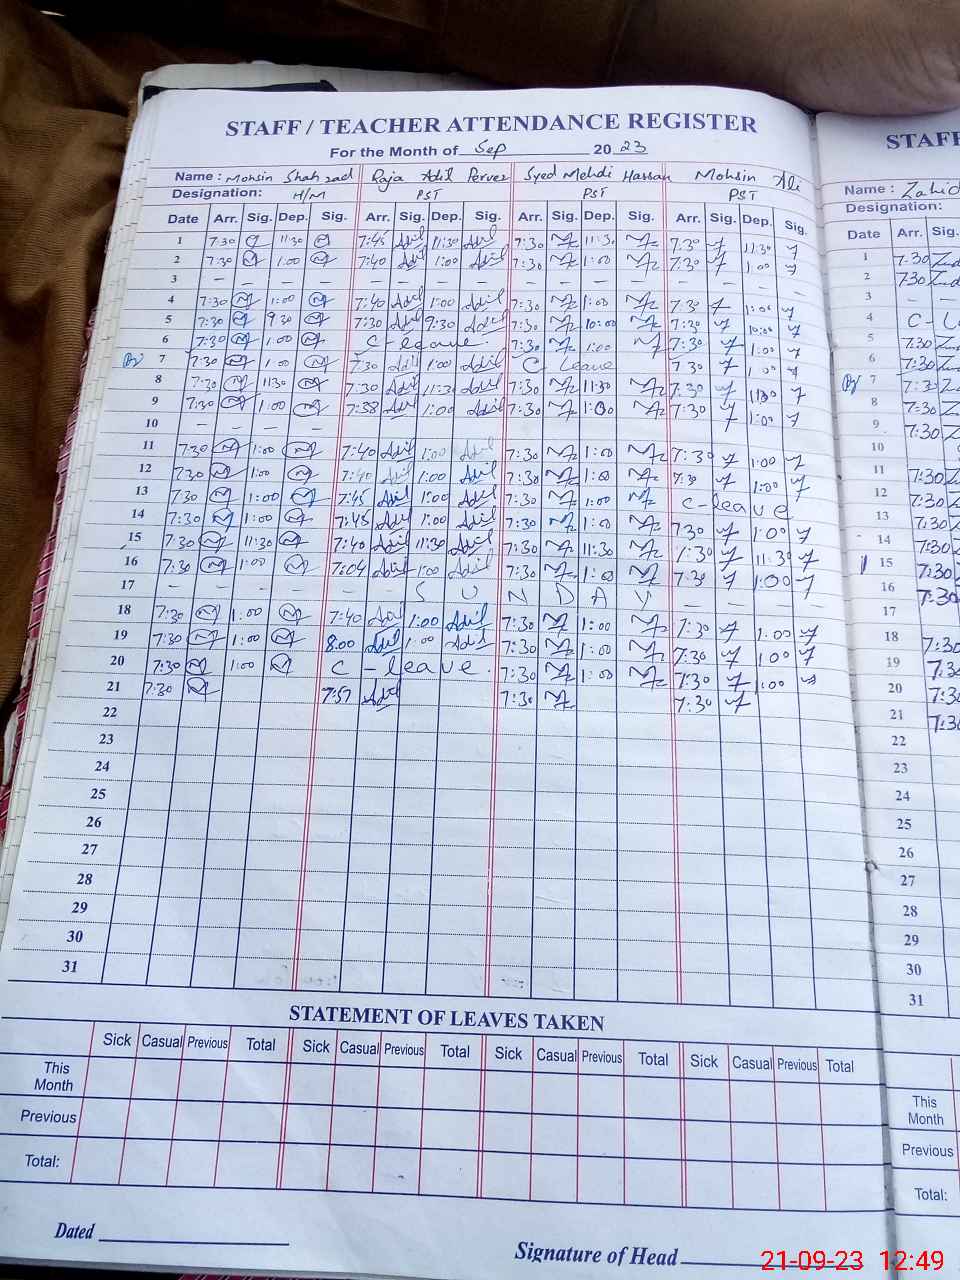 STAFF / TEACHER ATTENDANCE REGISTER
For the Month of Sep 2023
Name : Mohsin Shahzad Raja Adil Pervez Syed Mehdi Hassan Mohsin Ali
Designation: H/M PST PST PST
Date Arr. Sig. Dep. Sig. Arr. Sig. Dep. Sig. Arr. Sig. Dep. Sig. Arr. Sig. Dep. Sig.
1 7:30 11:30 7:45 Adil 11:30 Adil 7:30 11:30 7:30 11:30
2 7:30 1:00 7:40 Adil 1:00 Adil 7:30 1:00 7:30 1:00
3 – – – – – – – – – – – – – – – –
4 7:30 1:00 7:40 Adil 1:00 Adil 7:30 1:00 7:30 1:00
5 7:30 9:30 7:30 Adil 9:30 Adil 7:30 10:00 7:30 10:00
6 7:30 1:00 C-leave. 7:30 1:00 7:30 1:00
7 7:30 1:00 7:30 Adil 1:00 Adil C Leave 7:30 1:00
8 7:30 11:30 7:30 Adil 11:30 Adil 7:30 11:30 7:30 11:30
9 7:30 1:00 7:38 Adil 1:00 Adil 7:30 1:00 7:30 1:00
10 – – – –
11 7:30 1:00 7:40 Adil 1:00 Adil 7:30 1:00 7:30 1:00
12 7:30 1:00 7:40 Adil 1:00 Adil 7:30 1:00 7:30 1:00
13 7:30 1:00 7:45 Adil 1:00 Adil 7:30 1:00 C-leave
14 7:30 1:00 7:45 Adil 1:00 Adil 7:30 1:00 7:30 1:00
15 7:30 11:30 7:40 Adil 11:30 Adil 7:30 11:30 7:30 11:30
16 7:30 1:00 7:04 Adil 1:00 Adil 7:30 1:00 7:30 1:00
17 – – – – – – S U N D A Y – – – –
18 7:30 1:00 7:40 Adil 1:00 Adil 7:30 1:00 7:30 1:00
19 7:30 1:00 8:00 Adil 1:00 Adil 7:30 1:00 7:30 1:00
20 7:30 1:00 C-leave. 7:30 1:00 7:30 1:00
21 7:30 7:57 Adil 7:30 7:30
22
23
24
25
26
27
28
29
30
31
STATEMENT OF LEAVES TAKEN
Sick Casual Previous Total Sick Casual Previous Total Sick Casual Previous Total Sick Casual Previous Total
This Month
Previous
Total:
Dated
Signature of Head
STAFF
Name : Zahid
Designation:
Date Arr. Sig.
1 7:30
2 7:30
3 – –
4 C-L
5 7:30
6 7:30
7 7:30
8 7:30
9 7:30
10
11 7:30
12 7:30
13 7:30
14 7:30
15 7:30
16 7:30
17
18 7:30
19 7:30
20 7:30
21 7:30
22
23
24
25
26
27
28
29
30
31
This Month
Previous
Total:
21-09-23 12:49